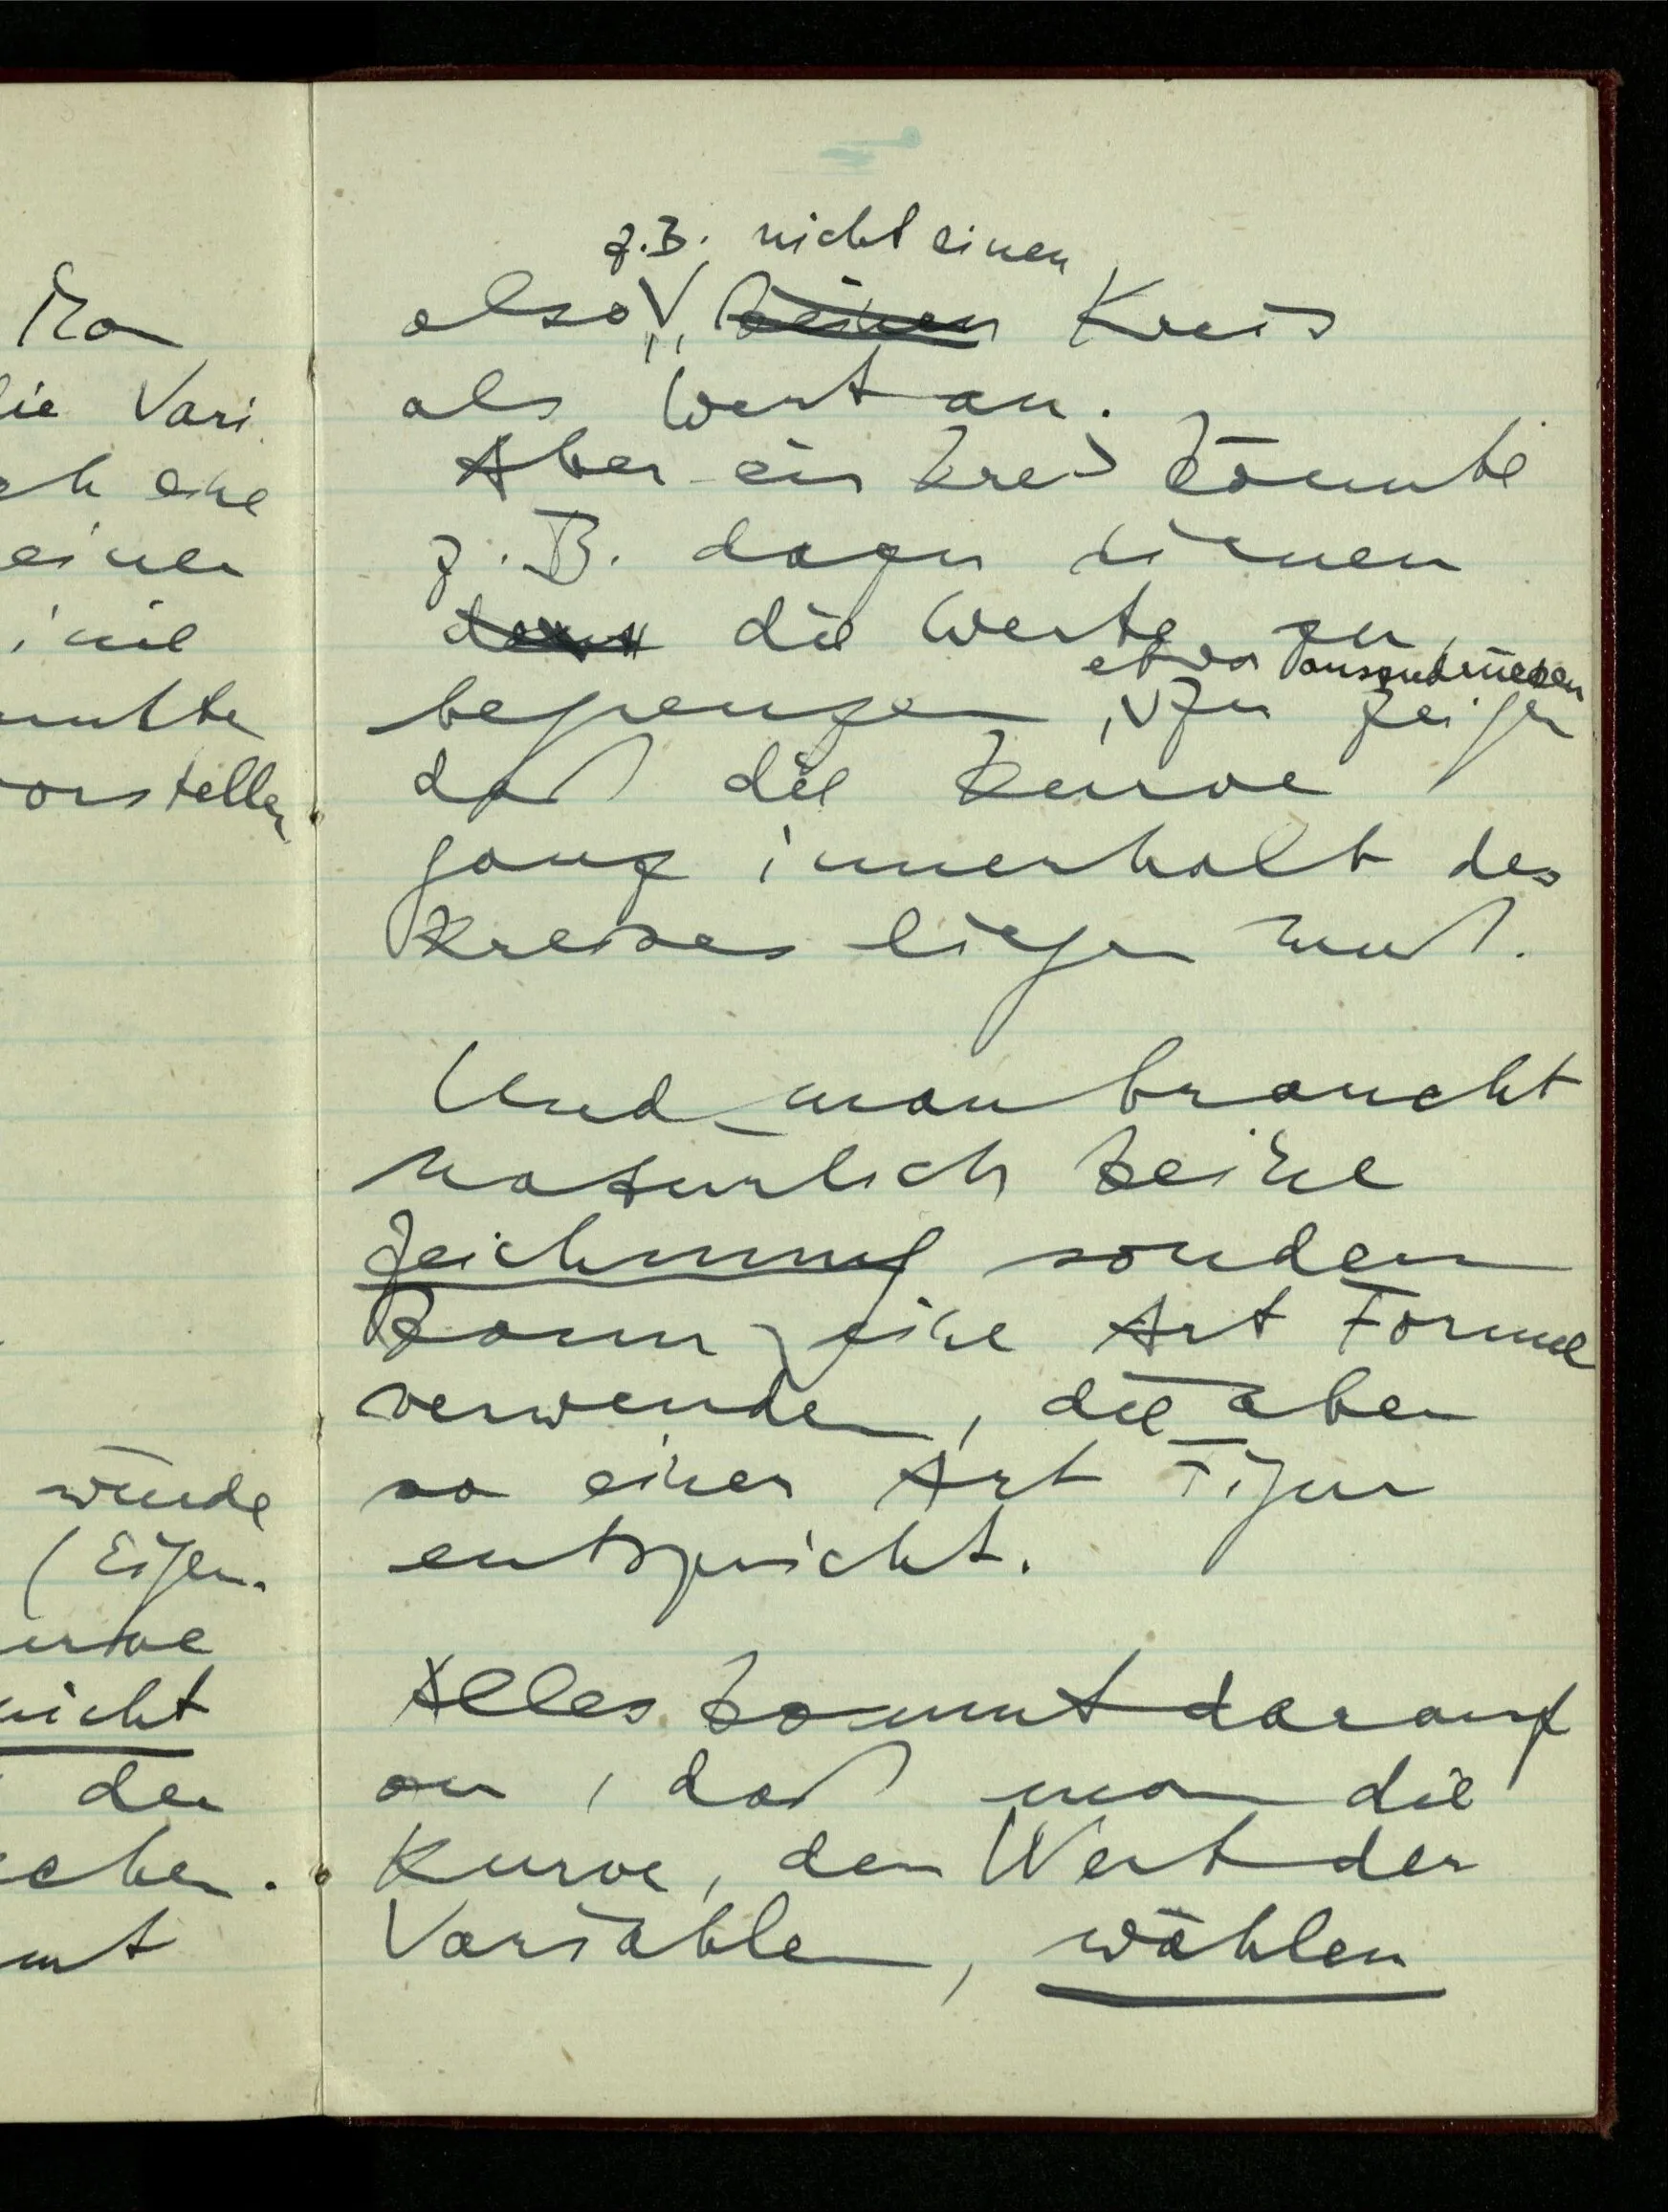 Man
die Vari
einer
vorstellen
würde
(Eigen-
nicht
den
z.B. nicht einen
also, keinen Kreis
als Wert an.
Aber ein Kreis könnte
z.B. dazu dienen
die Werte zu
etwa auszudrücken
begrenzen, zu zeigen
daß die Kurve
ganz innerhalb des
Kreises liegen muß.
Und man braucht
natürlich keine
Zeichnung sondern
kann eine Art Formel
verwenden, die aber
so einer Art Figur
entspricht.
Alles kommt darauf
an, daß man die
Kurve, den Wert der
Variablen, wählen